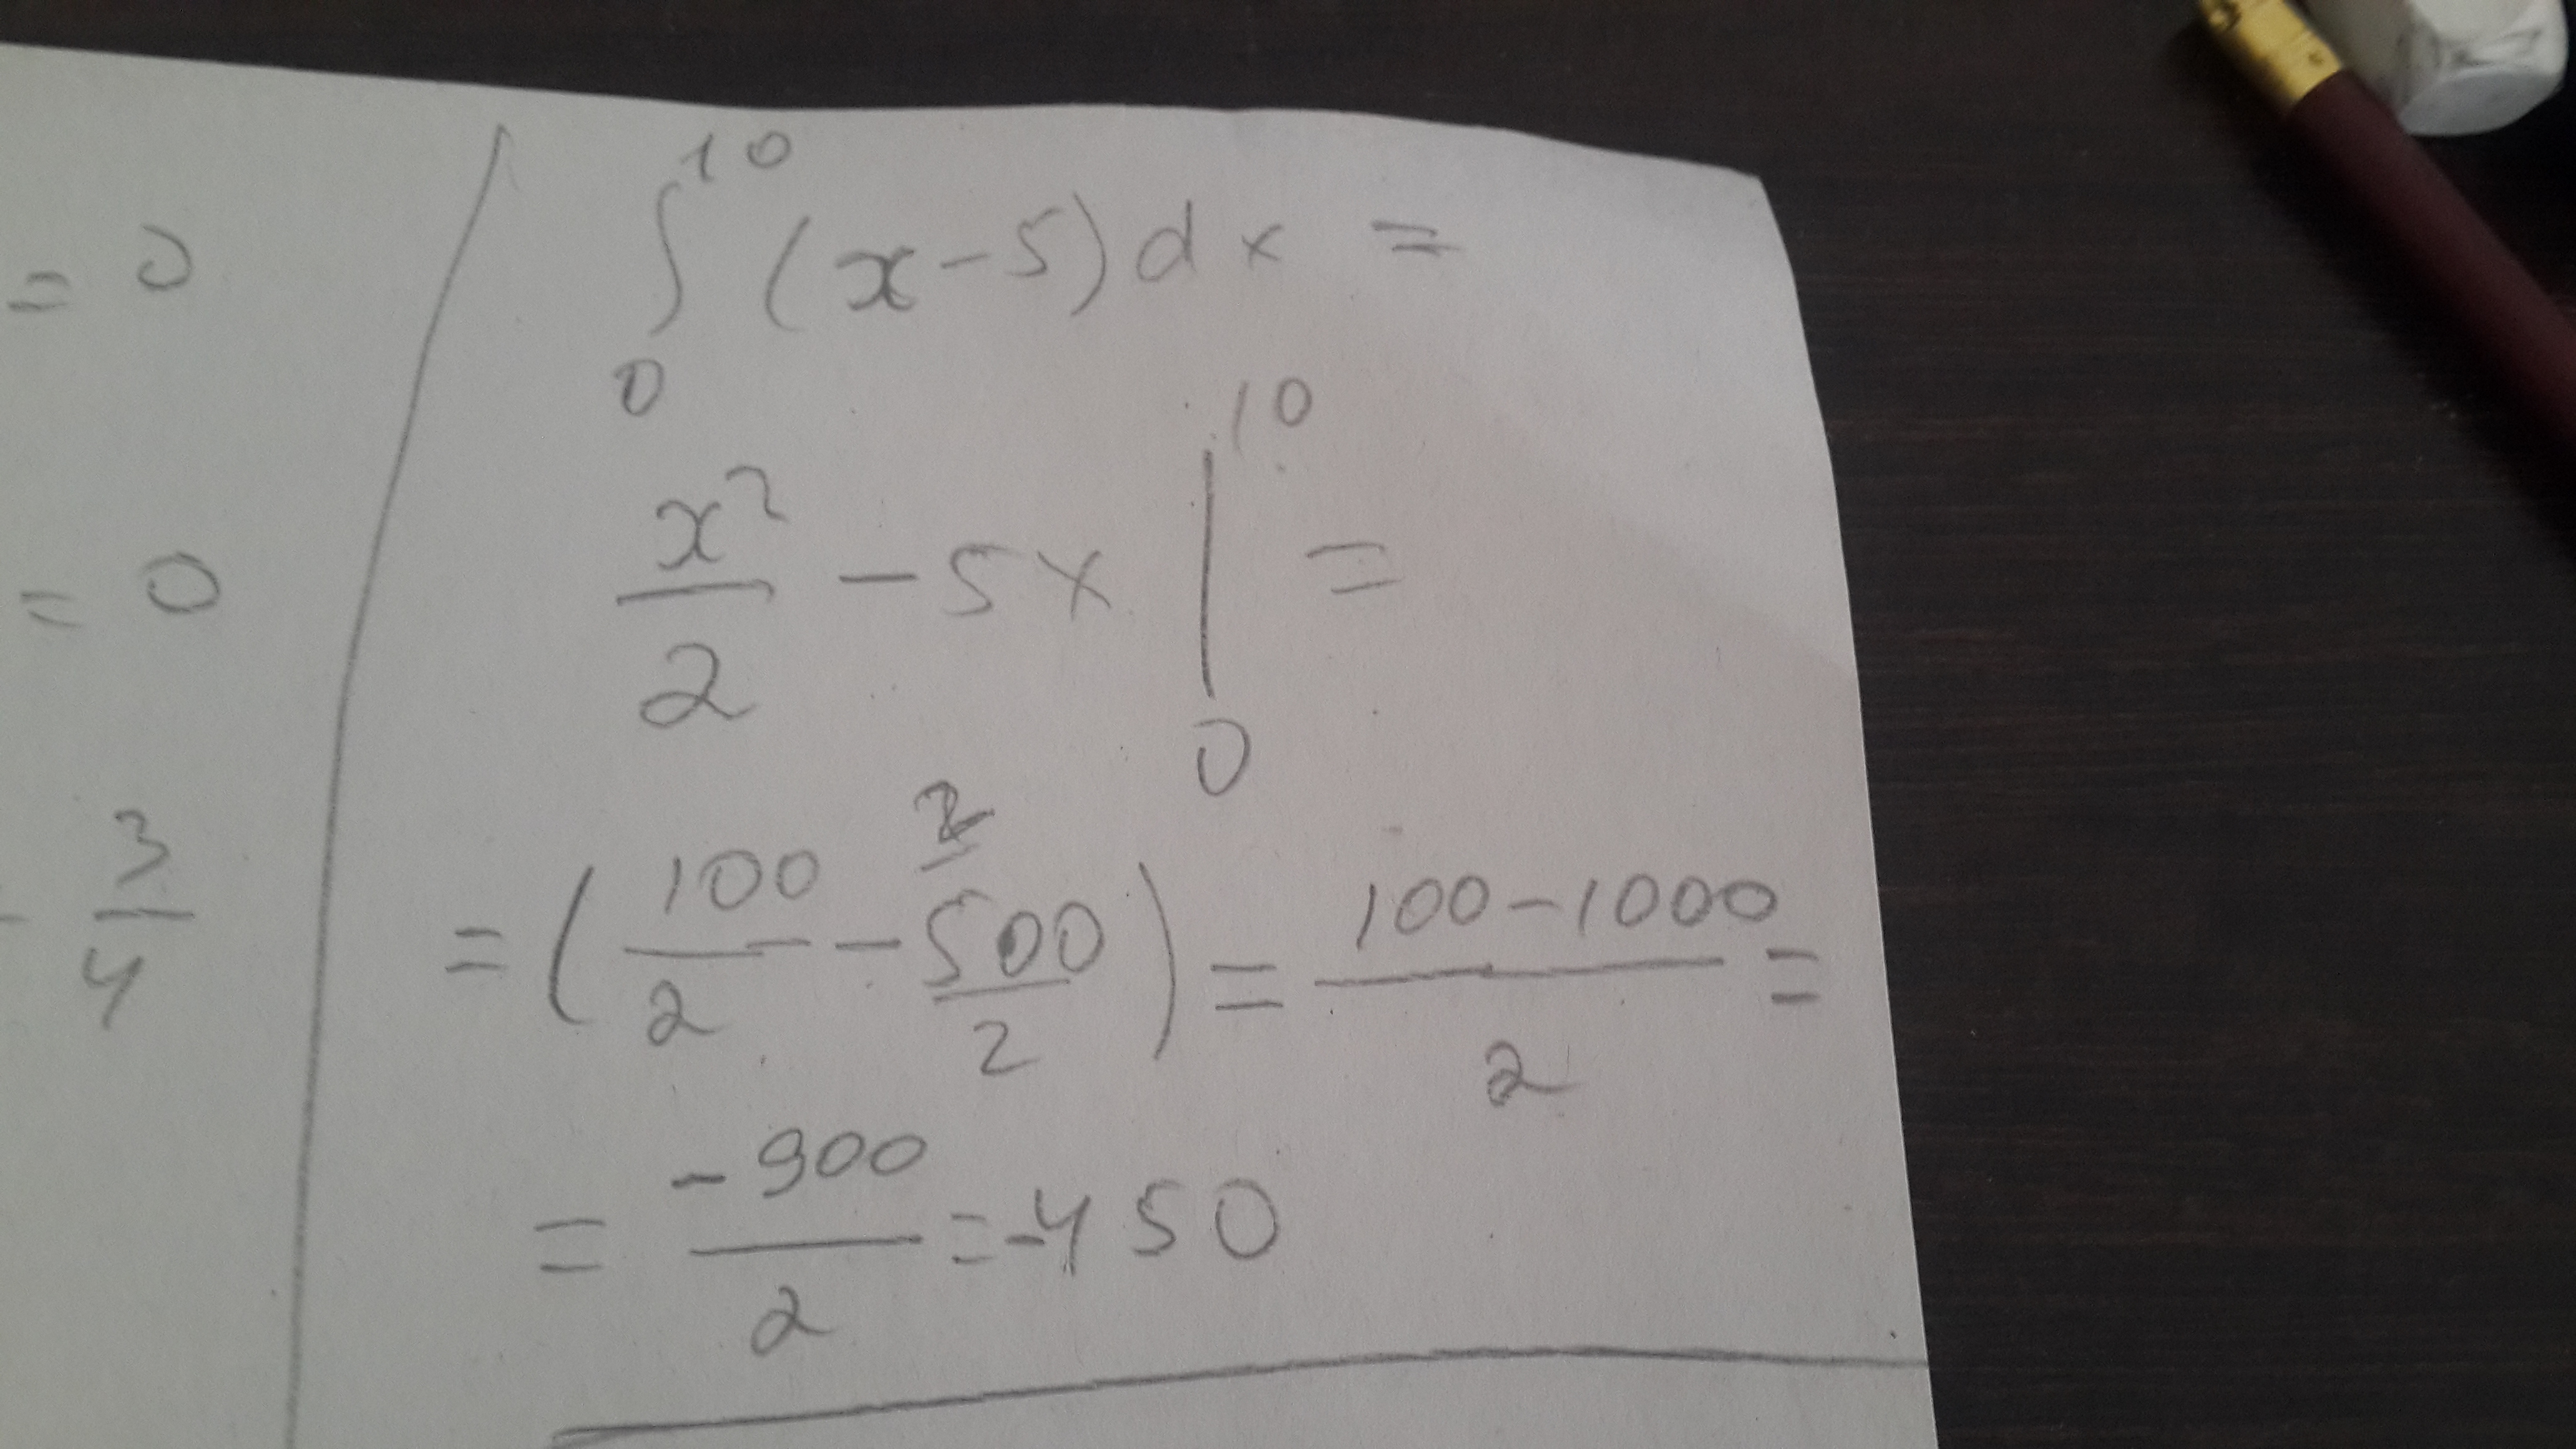 = 0
= 0
- 3/4
∫₀¹⁰ (x-5) dx =
x²/2 - 5x |₀¹⁰ =
= (100/2 - 500/2) = (100-1000)/2 =
= -900/2 = -450